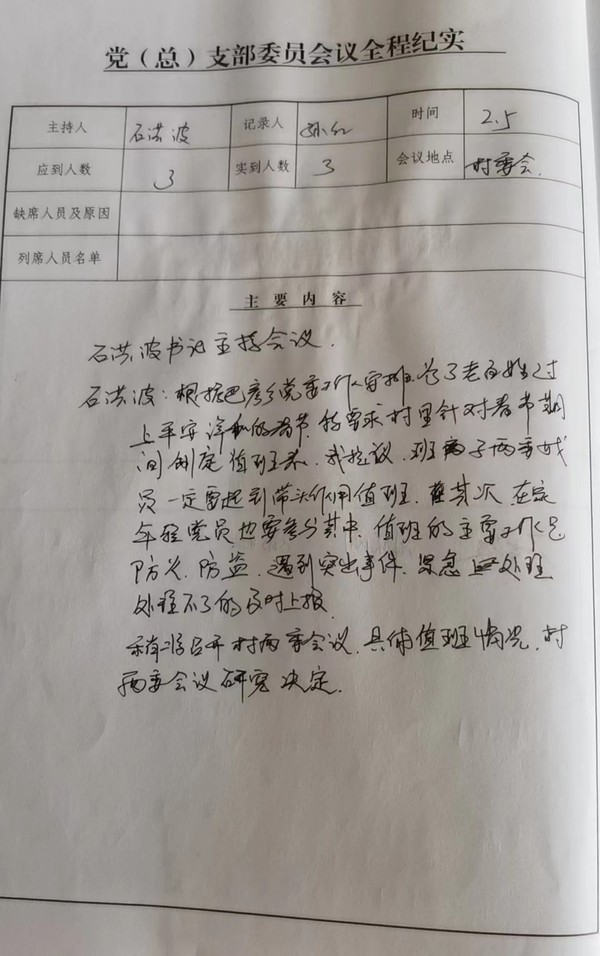 党（总）支部委员会议全程纪实
主持人 石洪波 记录人 孙红 时间 2.5
应到人数 3 实到人数 3 会议地点 村委会
缺席人员及原因
列席人员名单
主要内容
石洪波书记主持会议.
石洪波：根据巴彦乡党委工作安排 为了老百姓过
上平安详和的春节，特要求村里针对春节期
间制定值班表. 我提议. 班子两委成
员一定要起到带头作用值班. 其次 在家
年轻党员也要参与其中. 值班的主要工作是
防火. 防盗. 遇到突出事件. 紧急处理
处理不了的及时上报.
召开村两委会议. 具体值班情况. 村
两委会议研究决定.